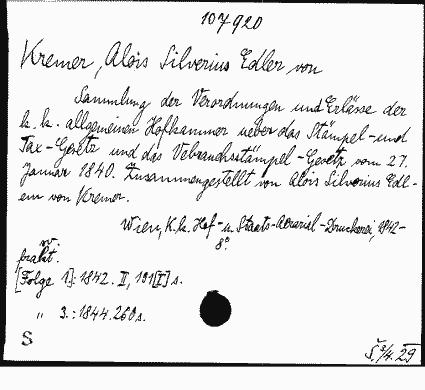 107920
Kremer, Alois Silverius Edler von
Sammlung der Verordnungen und Erlässe der
k. k. allgemeinen Hofkammer ueber das Stämpel-und
Tax-Gesetz und das Vebrauchsstämpel-Gesetz vom 27.
Januar 1840. Zusammengestellt von Alois Silverius Edl-
em von Kremer.
Wien, K. k. Hof- u. Staats-Aerarial-Druckerei, 1842-
8°.
[Folge 1]: 1842. II, 191[I] s.
" 3.: 1844. 260 s.
S